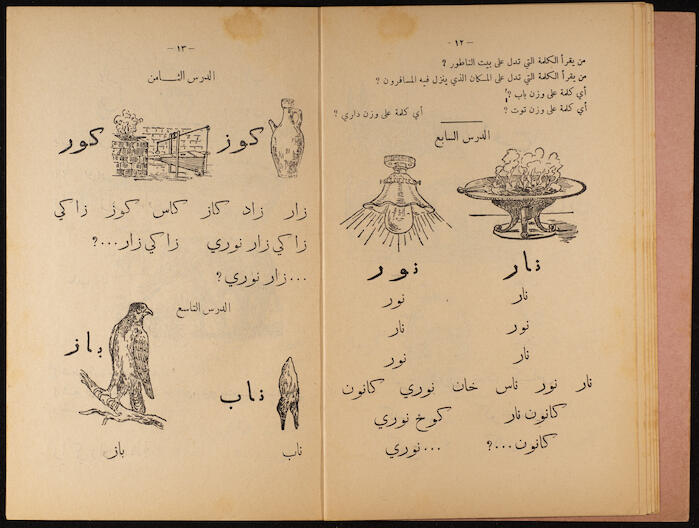 - ١٢ -
من يقرأ الكلمة التي تدل على بيت الناطور ؟
من يقرأ الكلمة التي تدل على المكان الذي ينزل فيه المسافرون ؟
أي كلمة على وزن باب ؟
أي كلمة على وزن توت ؟ أي كلمة على وزن داري ؟
الدرس السابع
نار نور
نار نور
نور نار
نار نور
نار نور ناس خان نوري كانون
كانون نار كوخ نوري
كانون ...؟ ... نوري
- ١٣ -
الدرس الثامن
كوز كور
زار زاد كاز كاس كوز زاكي
زاكي زار نوري زاكي زار ...؟
... زار نوري ؟
الدرس التاسع
باز
ناب
ناب باز